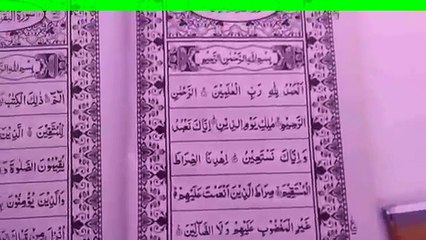 بِسْمِ اللهِ الرَّحْمٰنِ الرَّحِيْمِ
اَلْحَمْدُ لِلّٰهِ رَبِّ الْعٰلَمِيْنَ ۙ الرَّحْمٰنِ
الرَّحِيْمِ ۙ مٰلِكِ يَوْمِ الدِّيْنِ ۙ اِيَّاكَ نَعْبُدُ
وَاِيَّاكَ نَسْتَعِيْنُ ۙ اِهْدِنَا الصِّرَاطَ
الْمُسْتَقِيْمَ ۙ صِرَاطَ الَّذِيْنَ اَنْعَمْتَ عَلَيْهِمْ
غَيْرِ الْمَغْضُوْبِ عَلَيْهِمْ وَلَا الضَّآلِّيْنَ
سورة البقرة
بِسْمِ اللهِ
الٓمّٓ ذٰلِكَ الْكِتٰبُ
لِّلْمُتَّقِيْنَ الَّذِيْنَ
يُقِيْمُوْنَ الصَّلٰوةَ
وَالَّذِيْنَ يُؤْمِنُوْنَ
اُنْزِلَ مِنْ